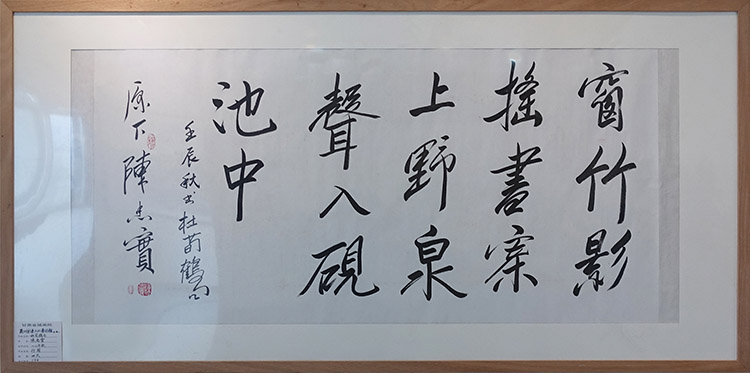 窗竹影
搖書案
上野泉
聲入硯
池中
壬辰秋书杜荀鶴句
原下陳忠實